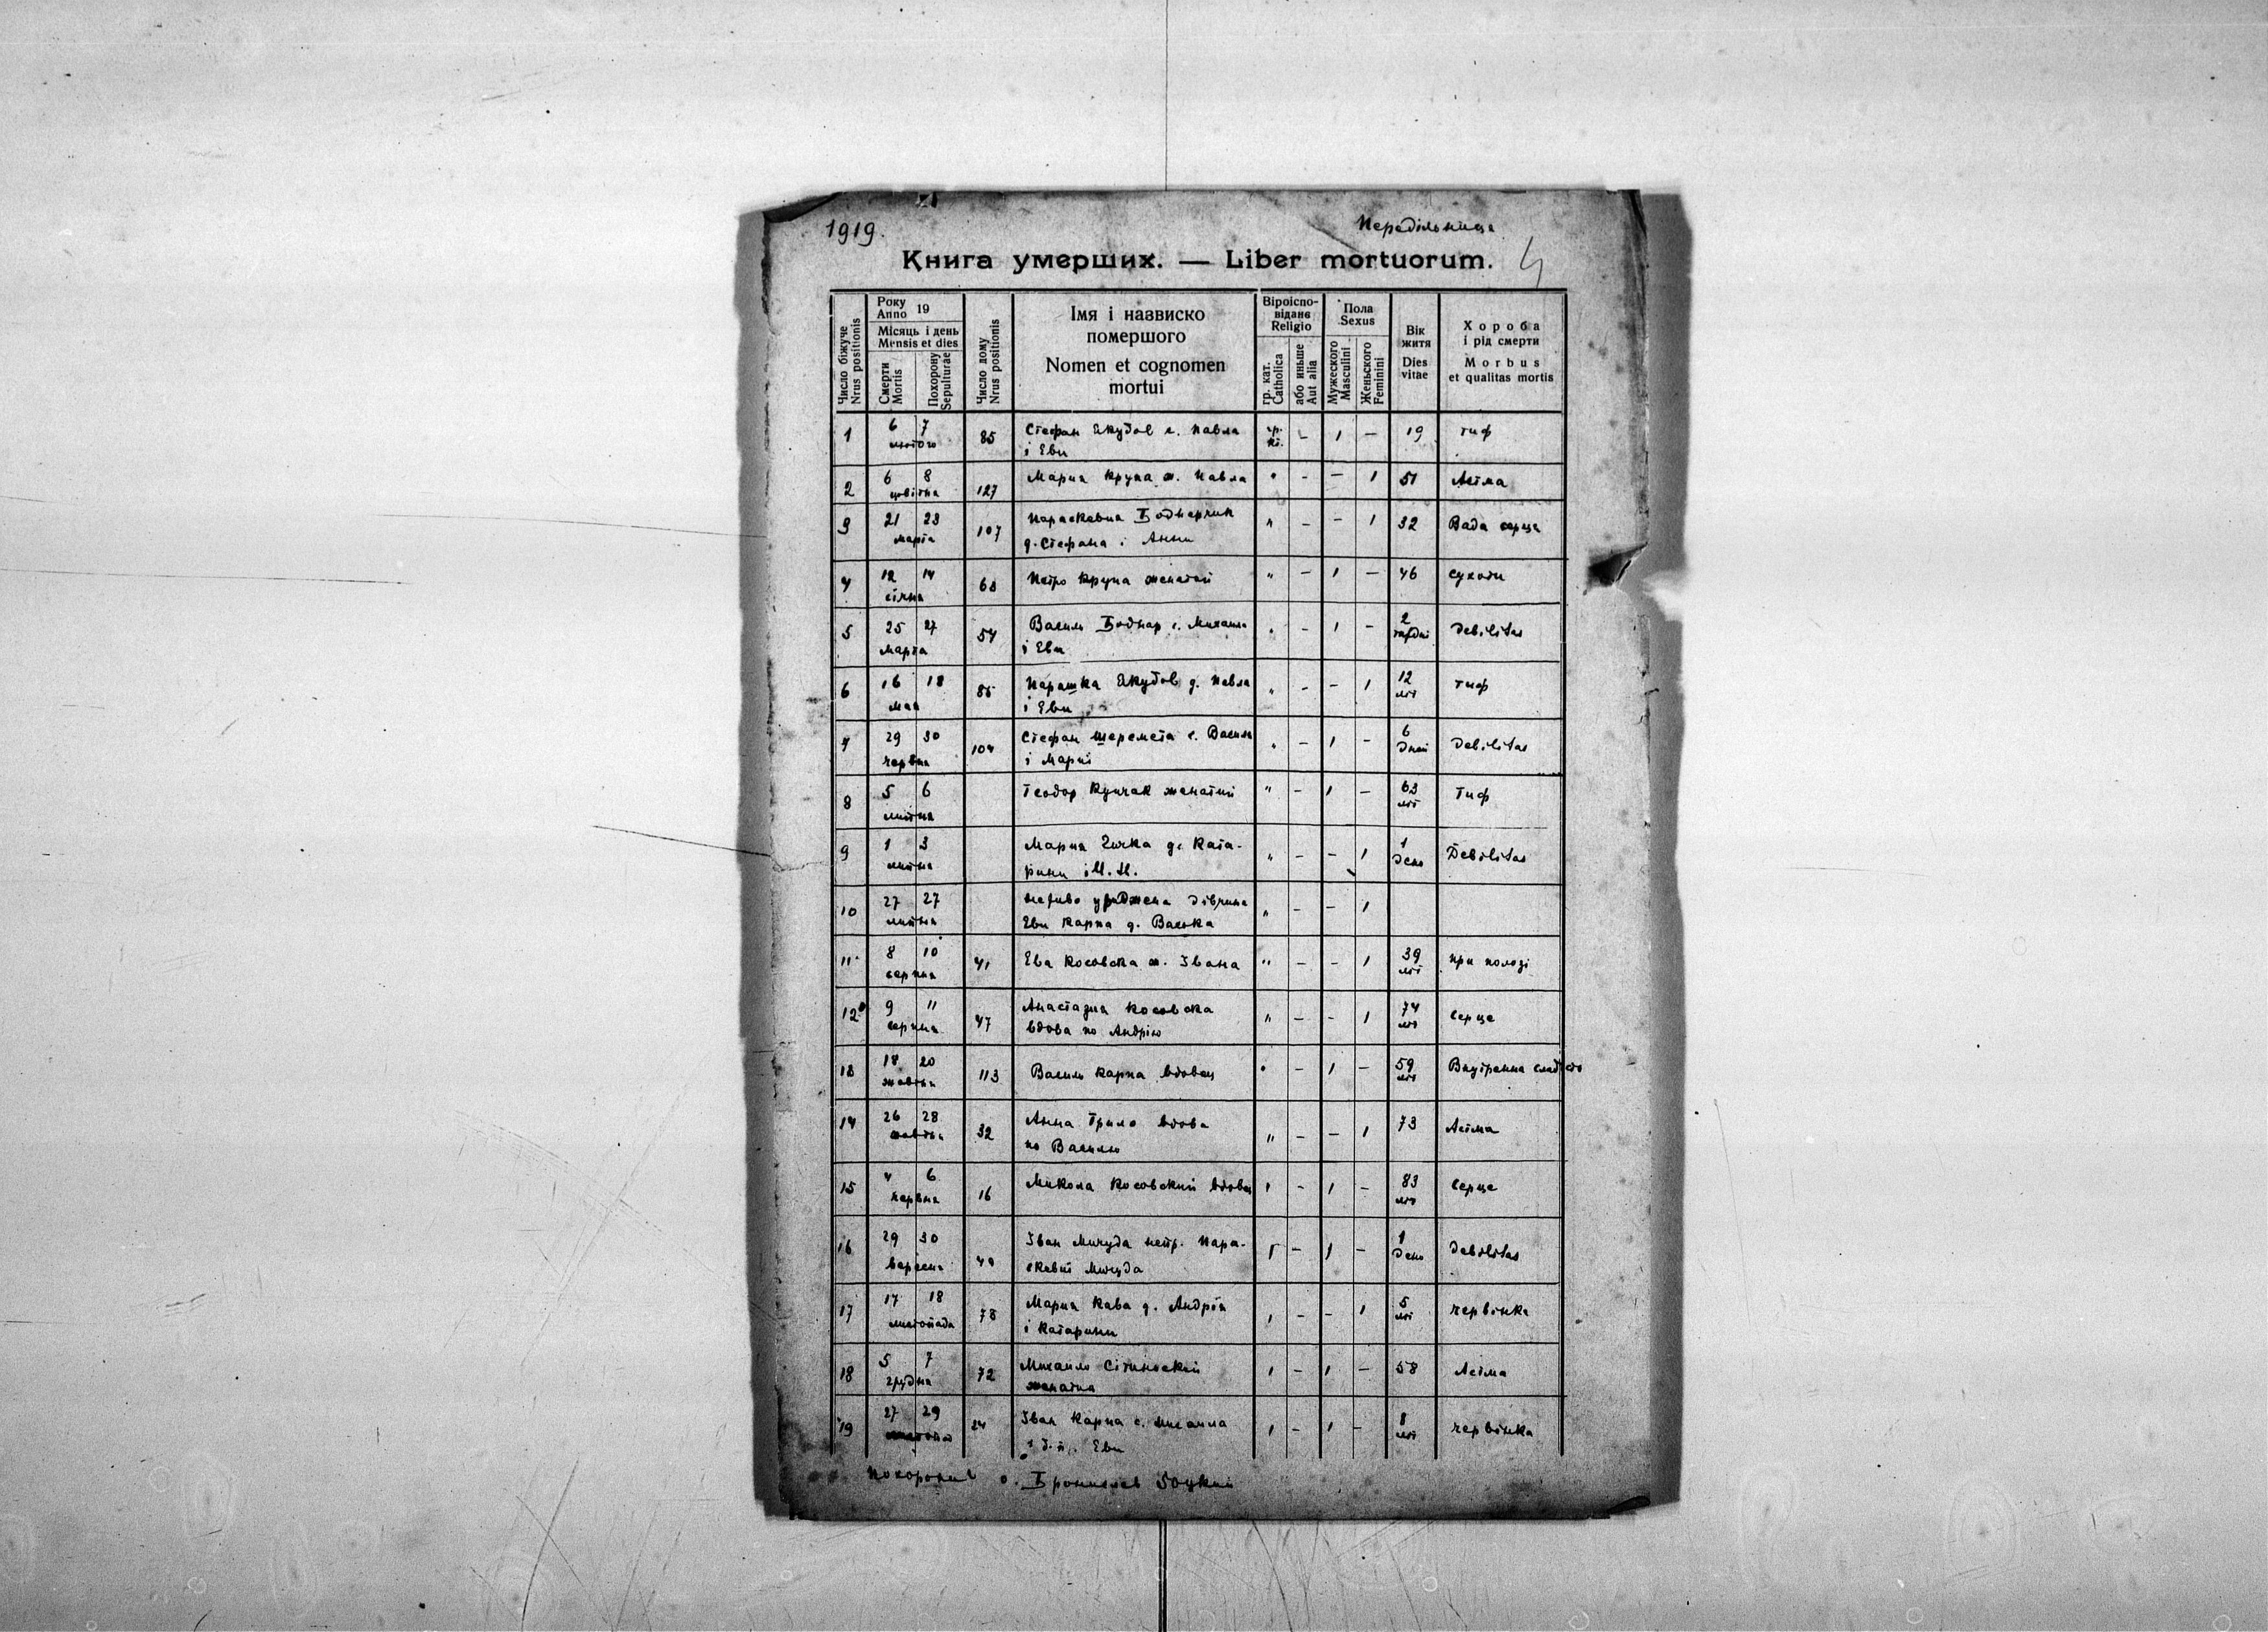 1919.
Передільниця
Книга умерших. — Liber mortuorum.
4
Число біжуче
Nrus positionis
Року
Anno 19
Місяць і день
Mensis et dies
Смерти
Mortis
Похорону
Sepulturae
Число дому
Nrus positionis
Імя і назвиско
помершого
Nomen et cognomen
mortui
Віроіспо-
віданє
Religio
гр. кат.
Catholica
або иньше
Aut alia
Пола
Sexus
Мужеского
Masculini
Женьского
Feminini
Вік
житя
Dies
vitae
Хороба
і рід смерти
Morbus
et qualitas mortis
1 6 7 85 Стефан Якубов с. Павла гр. - 1 — 19 тиф
лютого і Еви кт.
2 6 8 127 Мария Крупа ж. Павла " - — 1 51 Астма
цвітня
3 21 23 107 Параскевия Боднарчик " - - 1 32 Вада серця
марта д. Стефана і Анни
4 12 14 68 Петро Крупа женатий " — 1 — 46 сухоти
січня
5 25 27 54 Василь Боднар с. Михаила " - 1 - 2 Debilitas
марта і Еви тиждні
6 16 18 85 Парашка Якубов д. Павла " - - 1 12 тиф
мая і Еви літ
7 29 30 104 Стефан Шеремета с. Василя " - 1 - 6 Debilitas
червня і Марії дней
8 5 6 Теодор Купчак женатий " - 1 - 63 Тиф
липня літ
9 1 3 Мария д. Ката- " - - 1 1 Debilitas
липня рини і М. М. день
10 27 27 неживо уроджена дівчина " - - 1
липня Еви Карпа д. Васька
11 8 10 41 Ева Косовска ж. Івана " - - 1 39 при полозі
серпня літ
12 9 11 47 Анастазия Косовска " - - 1 74 Серце
серпня вдова по Андрію літ
13 18 20 113 Василь Карпа вдовец " - 1 - 59
жовтня літ
14 26 28 32 Анна Грило вдова " - - 1 73 Астма
жовтня по Василю
15 4 6 16 Микола Косовский вдовец " - 1 - 83 Серце
червня літ
16 29 30 Іван Мигуда непр. Пара- " - 1 - 1 Debilitas
вересня скевії Мигуда день
17 17 18 78 Мария Кава д. Андрія " - - 1 5 червінка
листопада і Катарини літ
18 5 7 72 Михаило " - 1 - 58 Астма
грудня женатий
19 27 29 24 Іван Карпа с. Михаила " - 1 - 8 червінка
Еви літ
Похоронив о. Броnислав